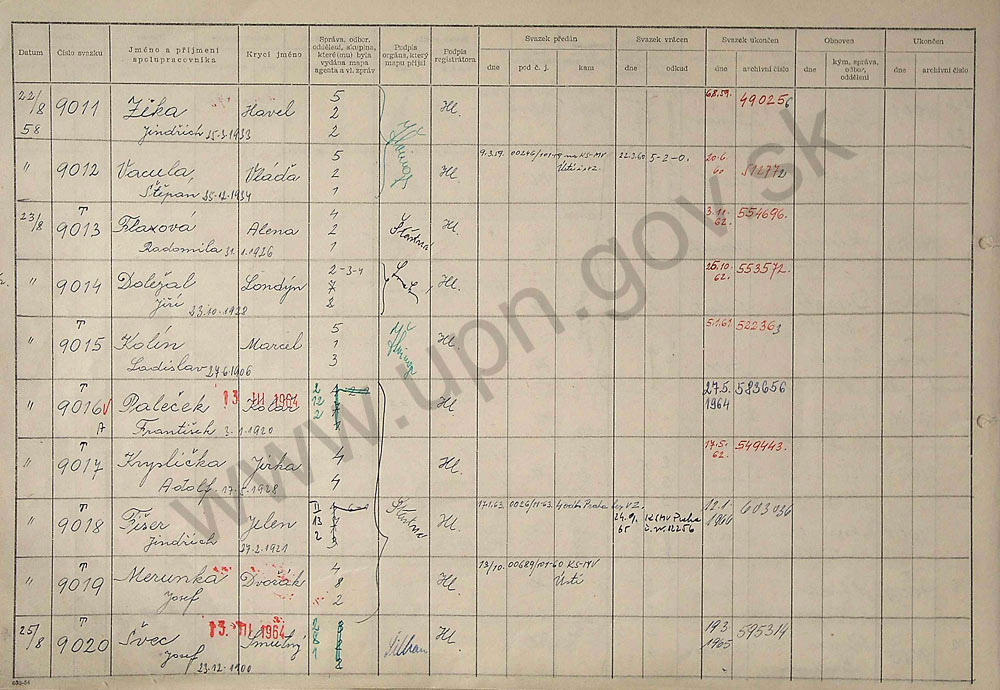 Datum Číslo svazku Jméno a příjmení spolupracovníka Krycí jméno Správa, odbor, oddělení, skupina, které(mu) byla vydána mapa agenta a vl. zpráv Podpis orgána, který mapu přijal Podpis registrátora Svazek předán Svazek vrácen Svazek ukončen Obnoven Ukončen
dne pod č. j. kam dne odkud dne archivní číslo dne kým, správa, odbor, oddělení dne archivní číslo
22/8 58 9011 Zika Havel 5 Hl. 6.8.59. 490256
Jindřich 25.3.1933 2
2
" 9012 Vacula, Vláďa 5 Hl. 9.3.59. KS-MV 22.3.60 5-2-0. 20.6. 60 512772
Štěpan 25.12.1934 2 Ústí
1
23/8 T 9013 Flaxová Alena 4 Šťastná Hl. 3.11. 62. 554696.
Radomila 31.1.1926 2
1
" 9014 Doležal Londýn 2-3-4 Hl. 25.10. 62. 553572.
Jiří 23.10.1928 7
2
" T 9015 Kolín Marcel 5 Hl. 5.1.61 522363
Ladislav 27.6.1906 1
3
" T 9016 Paleček 13. III 1964 Kolář 2 4 Hl 27.5. 1964 583656
A František 3.1.1920 12
2
" T 9017 Kryslička Jirka 4 Hl. 17.5. 62. 549443.
Adolf 17.5.1928 4
" T 9018 Fišer Jelen II 4 Hl. 17.1.63. 0026/11-63. Praha 24.9. 65 KSMV Praha 12.1. 1966 603036
Jindřich 27.2.1921 13
2 3
" T 9019 Merunka Dvořák 4 Hl. 13/10. 00689/101-60 KS-MV
Josef 8 Ústí
2
25/8 T 9020 Švec 13. III 1964 Smutný 2 Hl. 19.3. 1965 595314
Josef 23.12.1900 8
1 2
www.upn.gov.sk